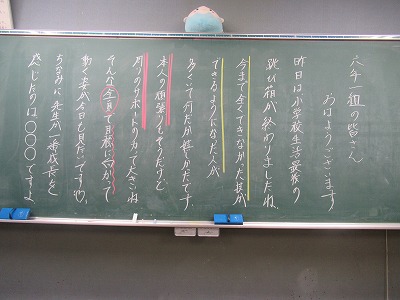 六年一組の皆さん
おはようございます
昨日は小学校生活最後の
跳び箱が終わりましたね。
今まで全くできなかった技が
できるようになった人が
多くいて何だか嬉しかったです
本人の頑張りもそうだけど
周りのサポートの力って大きいね
そんな全員で目標に向かって
動く姿が今日も見たいですね。
ちなみに先生が一番成長を
感じたのは〇〇〇ですよ